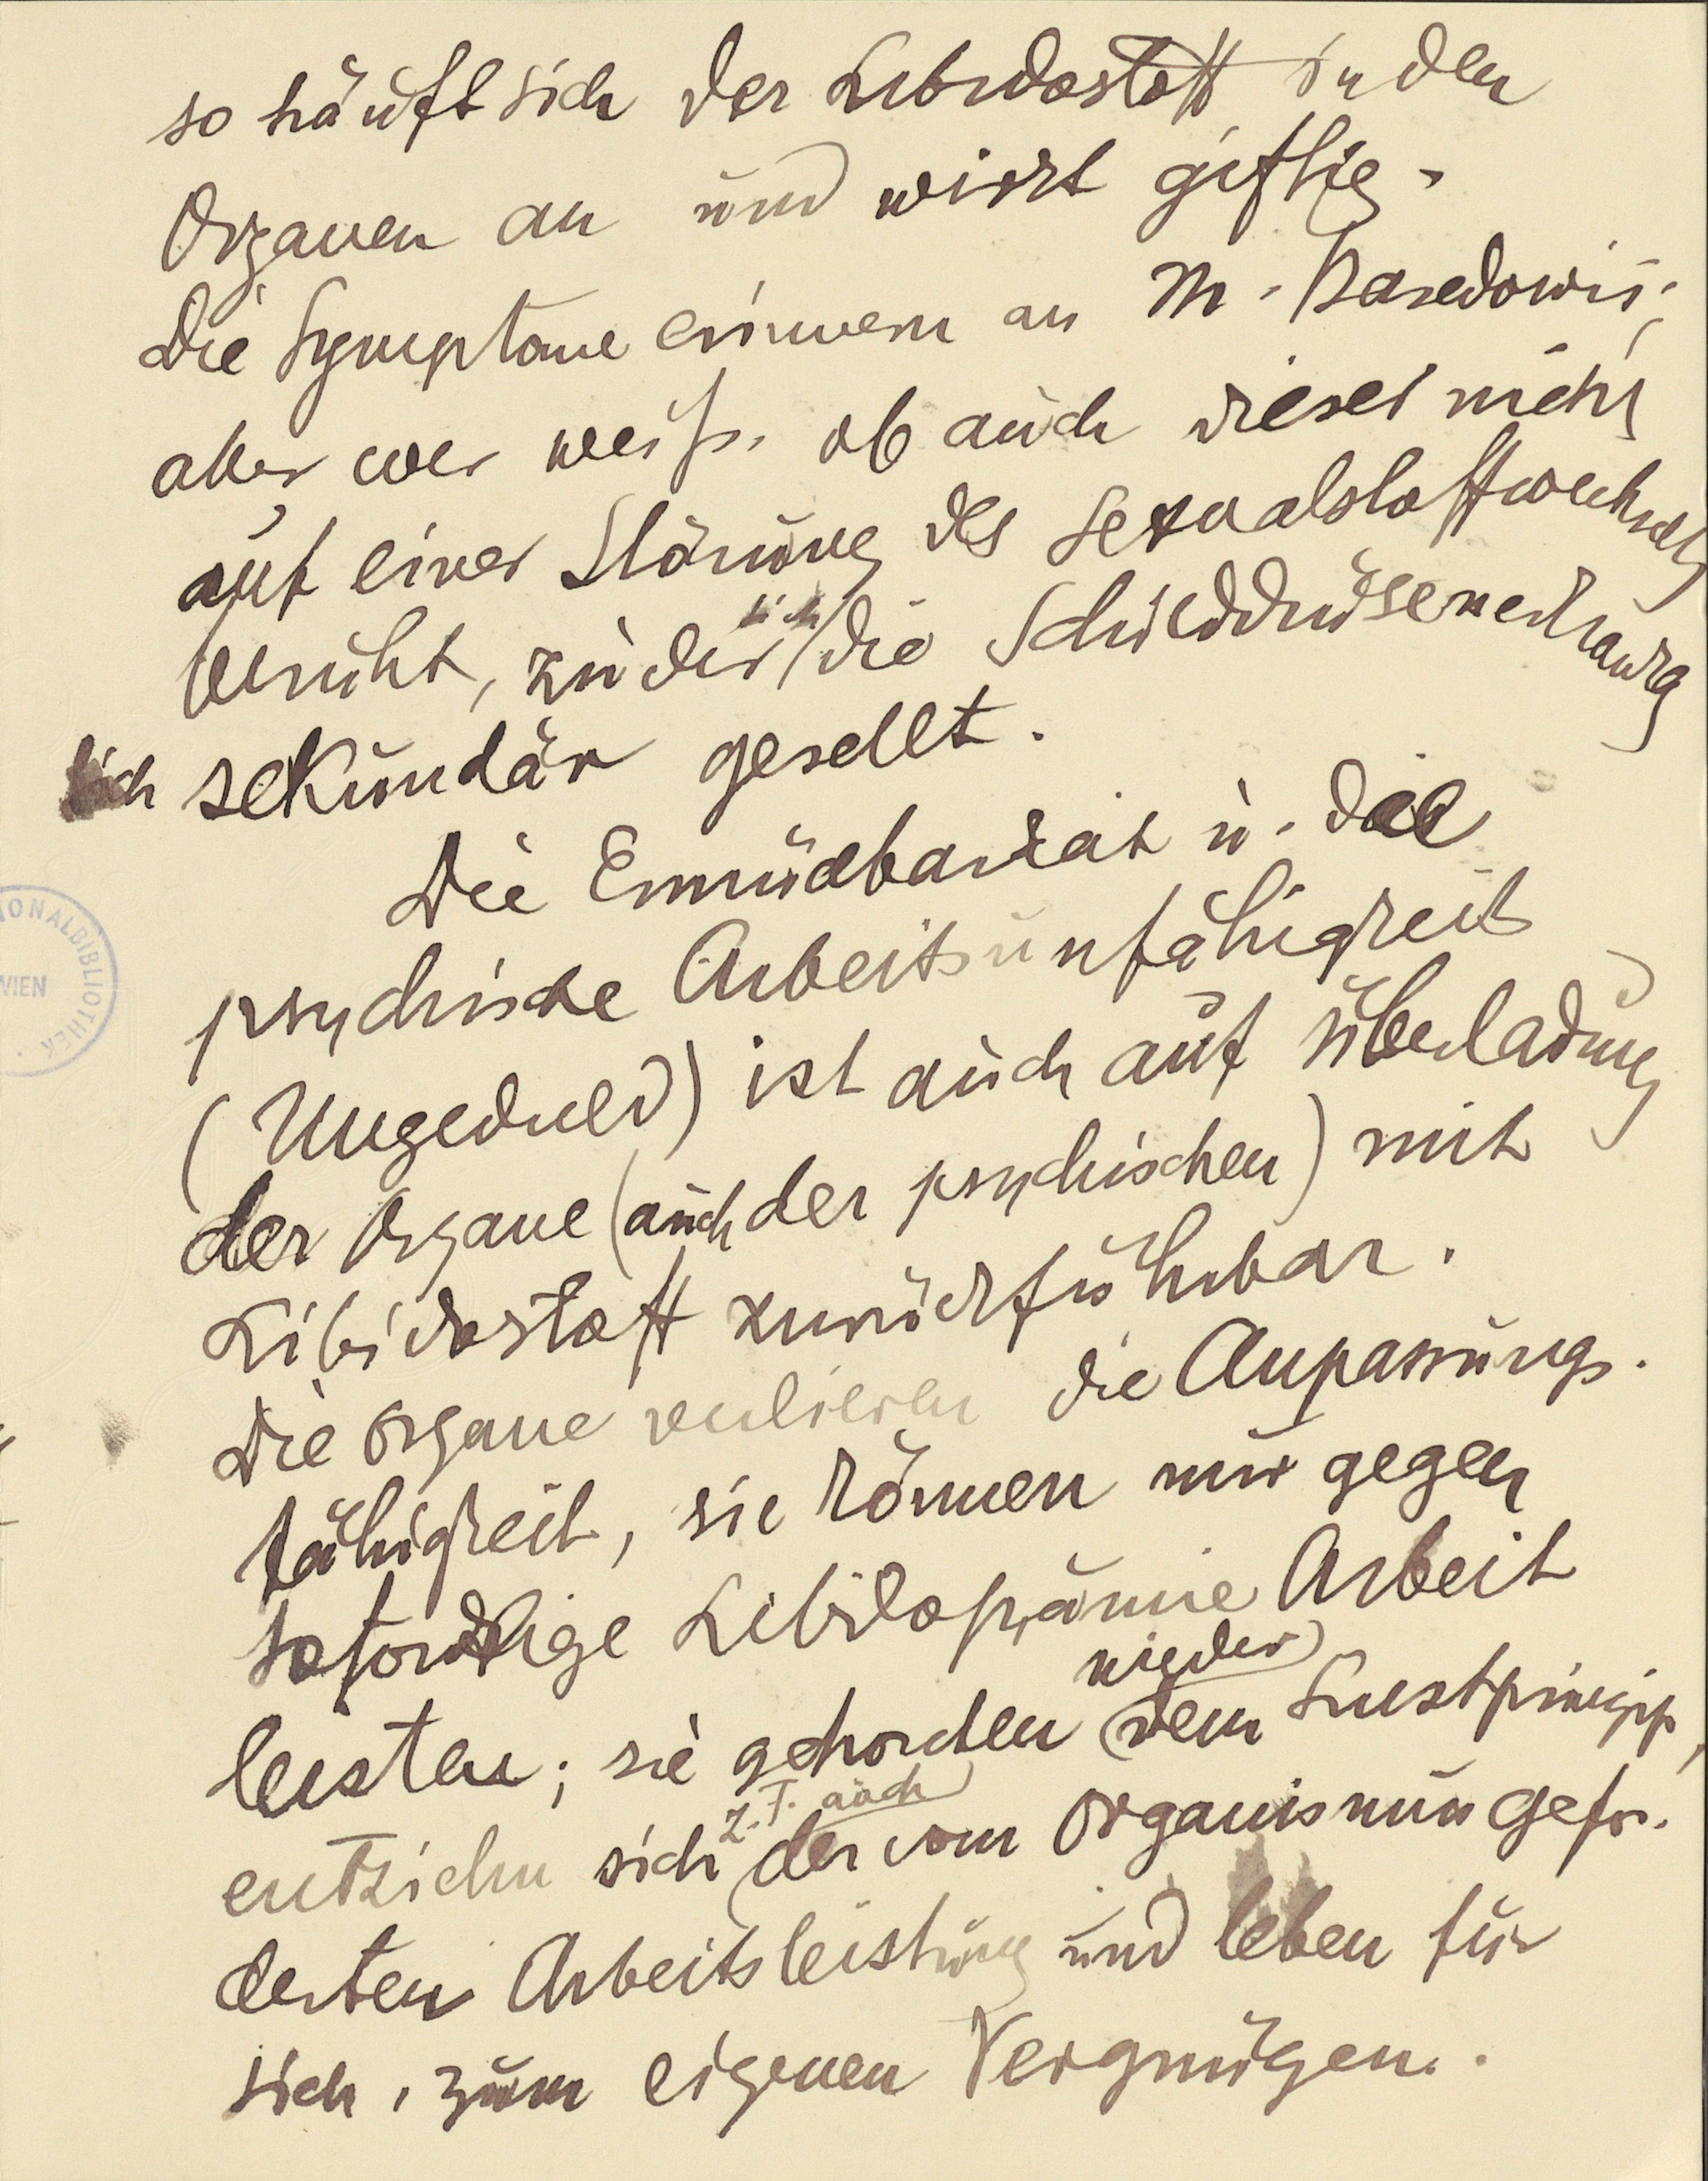 so häuft sich der Libidostoff in den
Organen an und wirkt giftig.
Die Symptome erinnern an M. Basedowii;
aber wer weiß, ob auch dieser nicht
auf einer Störung des Sexualstoffwechsels
beruht, zu der sich die Schilddrüsenerkrankg
sich sekundär gesellt.
Die Ermüdbarkeit u. die
psychische Arbeitsunfähigkeit
(Ungeduld) ist auch auf Überladung
der Organe (auch der psychischen) mit
Libidostoff zurückführbar.
Die Organe verlieren die Anpassungs-
fähigkeit, sie können nur gegen
sofortige Libidoprämie Arbeit
leisten; sie gehorchen wieder dem Lustprinzip,
entziehn sich z. T. auch der vom Organismus gefor-
derten Arbeitsleistung und leben für
sich, zum eigenen Vergnügen.
ONALBIBLIOTHEK
WIEN